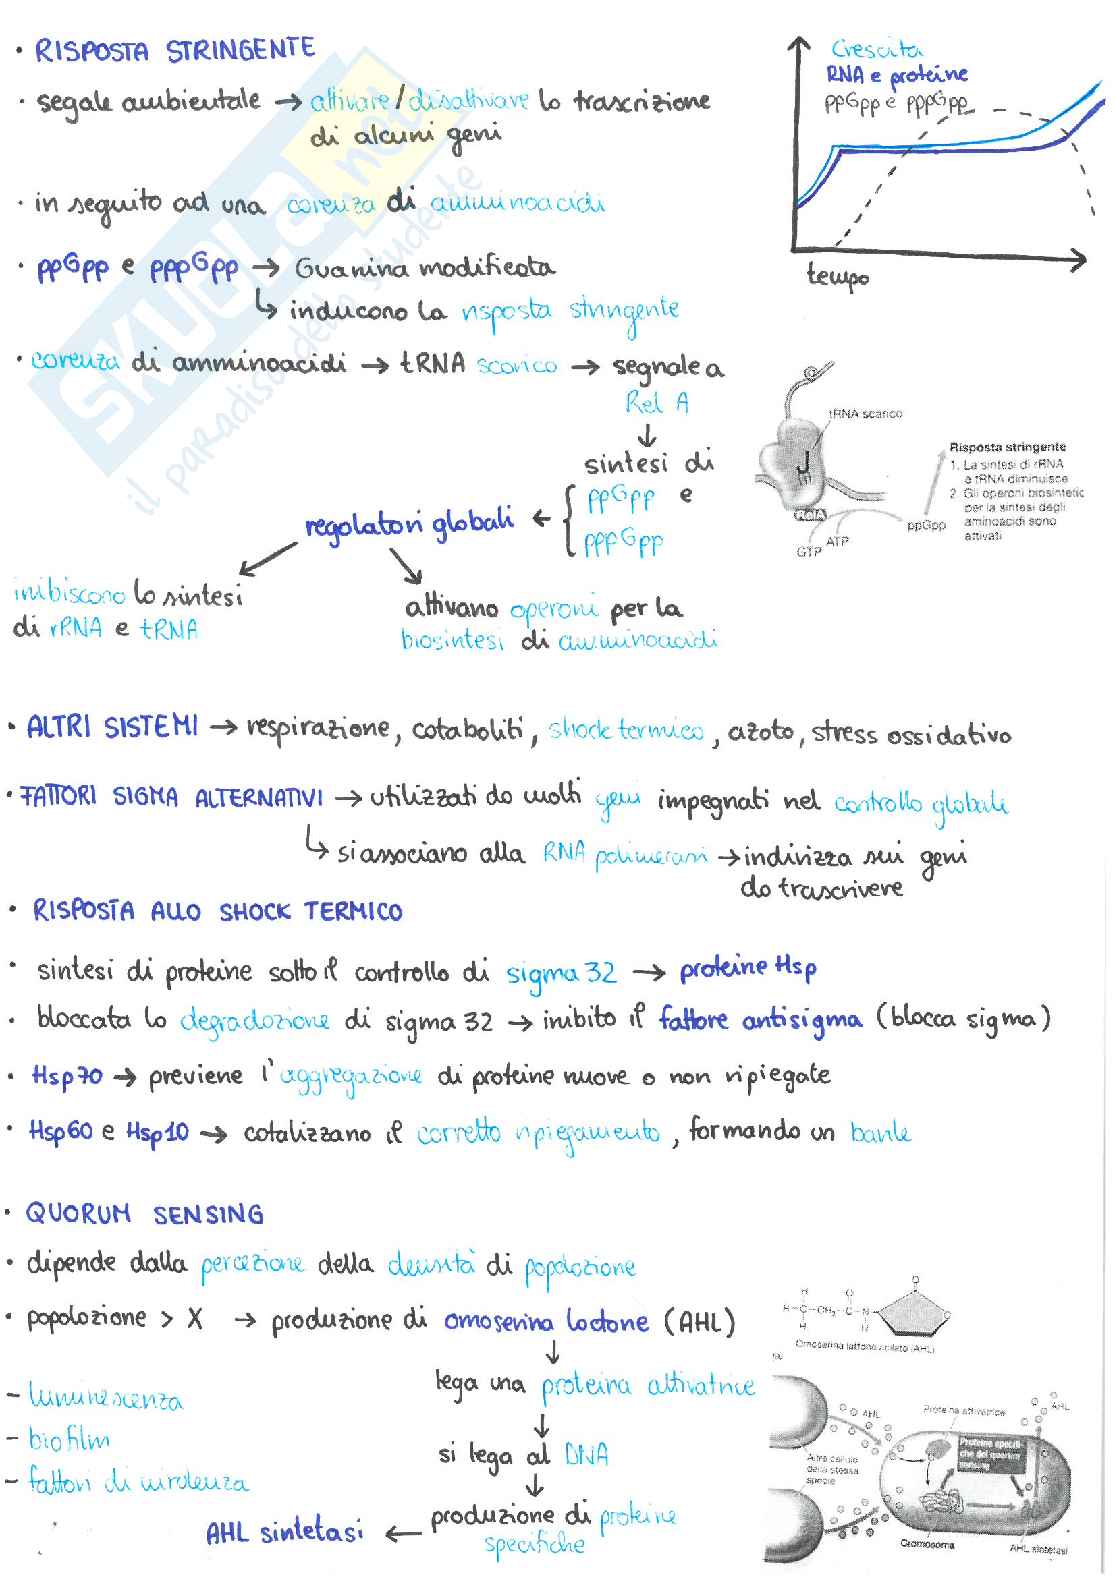 • RISPOSTA STRINGENTE
• segale ambientale → attivare/disattivare la trascrizione
di alcuni geni
• in seguito ad una carenza di amminoacidi
• ppGpp e pppGpp → Guanina modificata
↳ inducono la risposta stringente
• carenza di amminoacidi → tRNA scarico → segnale a
Rel A
↓
sintesi di
regolatori globali ← { ppGpp e
pppGpp
inibiscono la sintesi
di rRNA e tRNA
attivano operoni per la
biosintesi di amminoacidi
Crescita
RNA e proteine
ppGpp e pppGpp
tempo
tRNA scarico
Risposta stringente
1. La sintesi di rRNA
e tRNA diminuisce
2 Gli operoni biosintetic
per la sintesi degli
aminoacidi sono
attivati
RelA
ppGpp
GTP
ATP
SKUOLA.net
il paradiso dello studente
• ALTRI SISTEMI → respirazione, cataboliti, shock termico, azoto, stress ossidativo
• FATTORI SIGMA ALTERNATIVI → utilizzati da molti geni impegnati nel controllo globale
↳ si associano alla RNA polimerasi → indirizza sui geni
da trascrivere
• RISPOSTA ALLO SHOCK TERMICO
• sintesi di proteine sotto il controllo di sigma 32 → proteine Hsp
• bloccata la degradazione di sigma 32 → inibito il fattore antisigma (blocca sigma)
• Hsp70 → previene l'aggregazione di proteine nuove o non ripiegate
• Hsp60 e Hsp10 → catalizzano il corretto ripiegamento, formando un barile
• QUORUM SENSING
• dipende dalla percezione della densità di popolazione
• popolazione > X → produzione di omoserina lactone (AHL)
↓
lega una proteina attivatrice
↓
si lega al DNA
↓
AHL sintetasi ← produzione di proteine
specifiche
- luminescenza
- biofilm
- fattori di virulenza
H O O
H-C-CH₂-C-N
H H O
Omoserina lattone acilato (AHL)
AHL
Proteina attivatrice
AHL
Proteine specifi-
che del quorum
sensing
Altre cellule
della stessa
specie
Cromosoma
AHL sintetasi